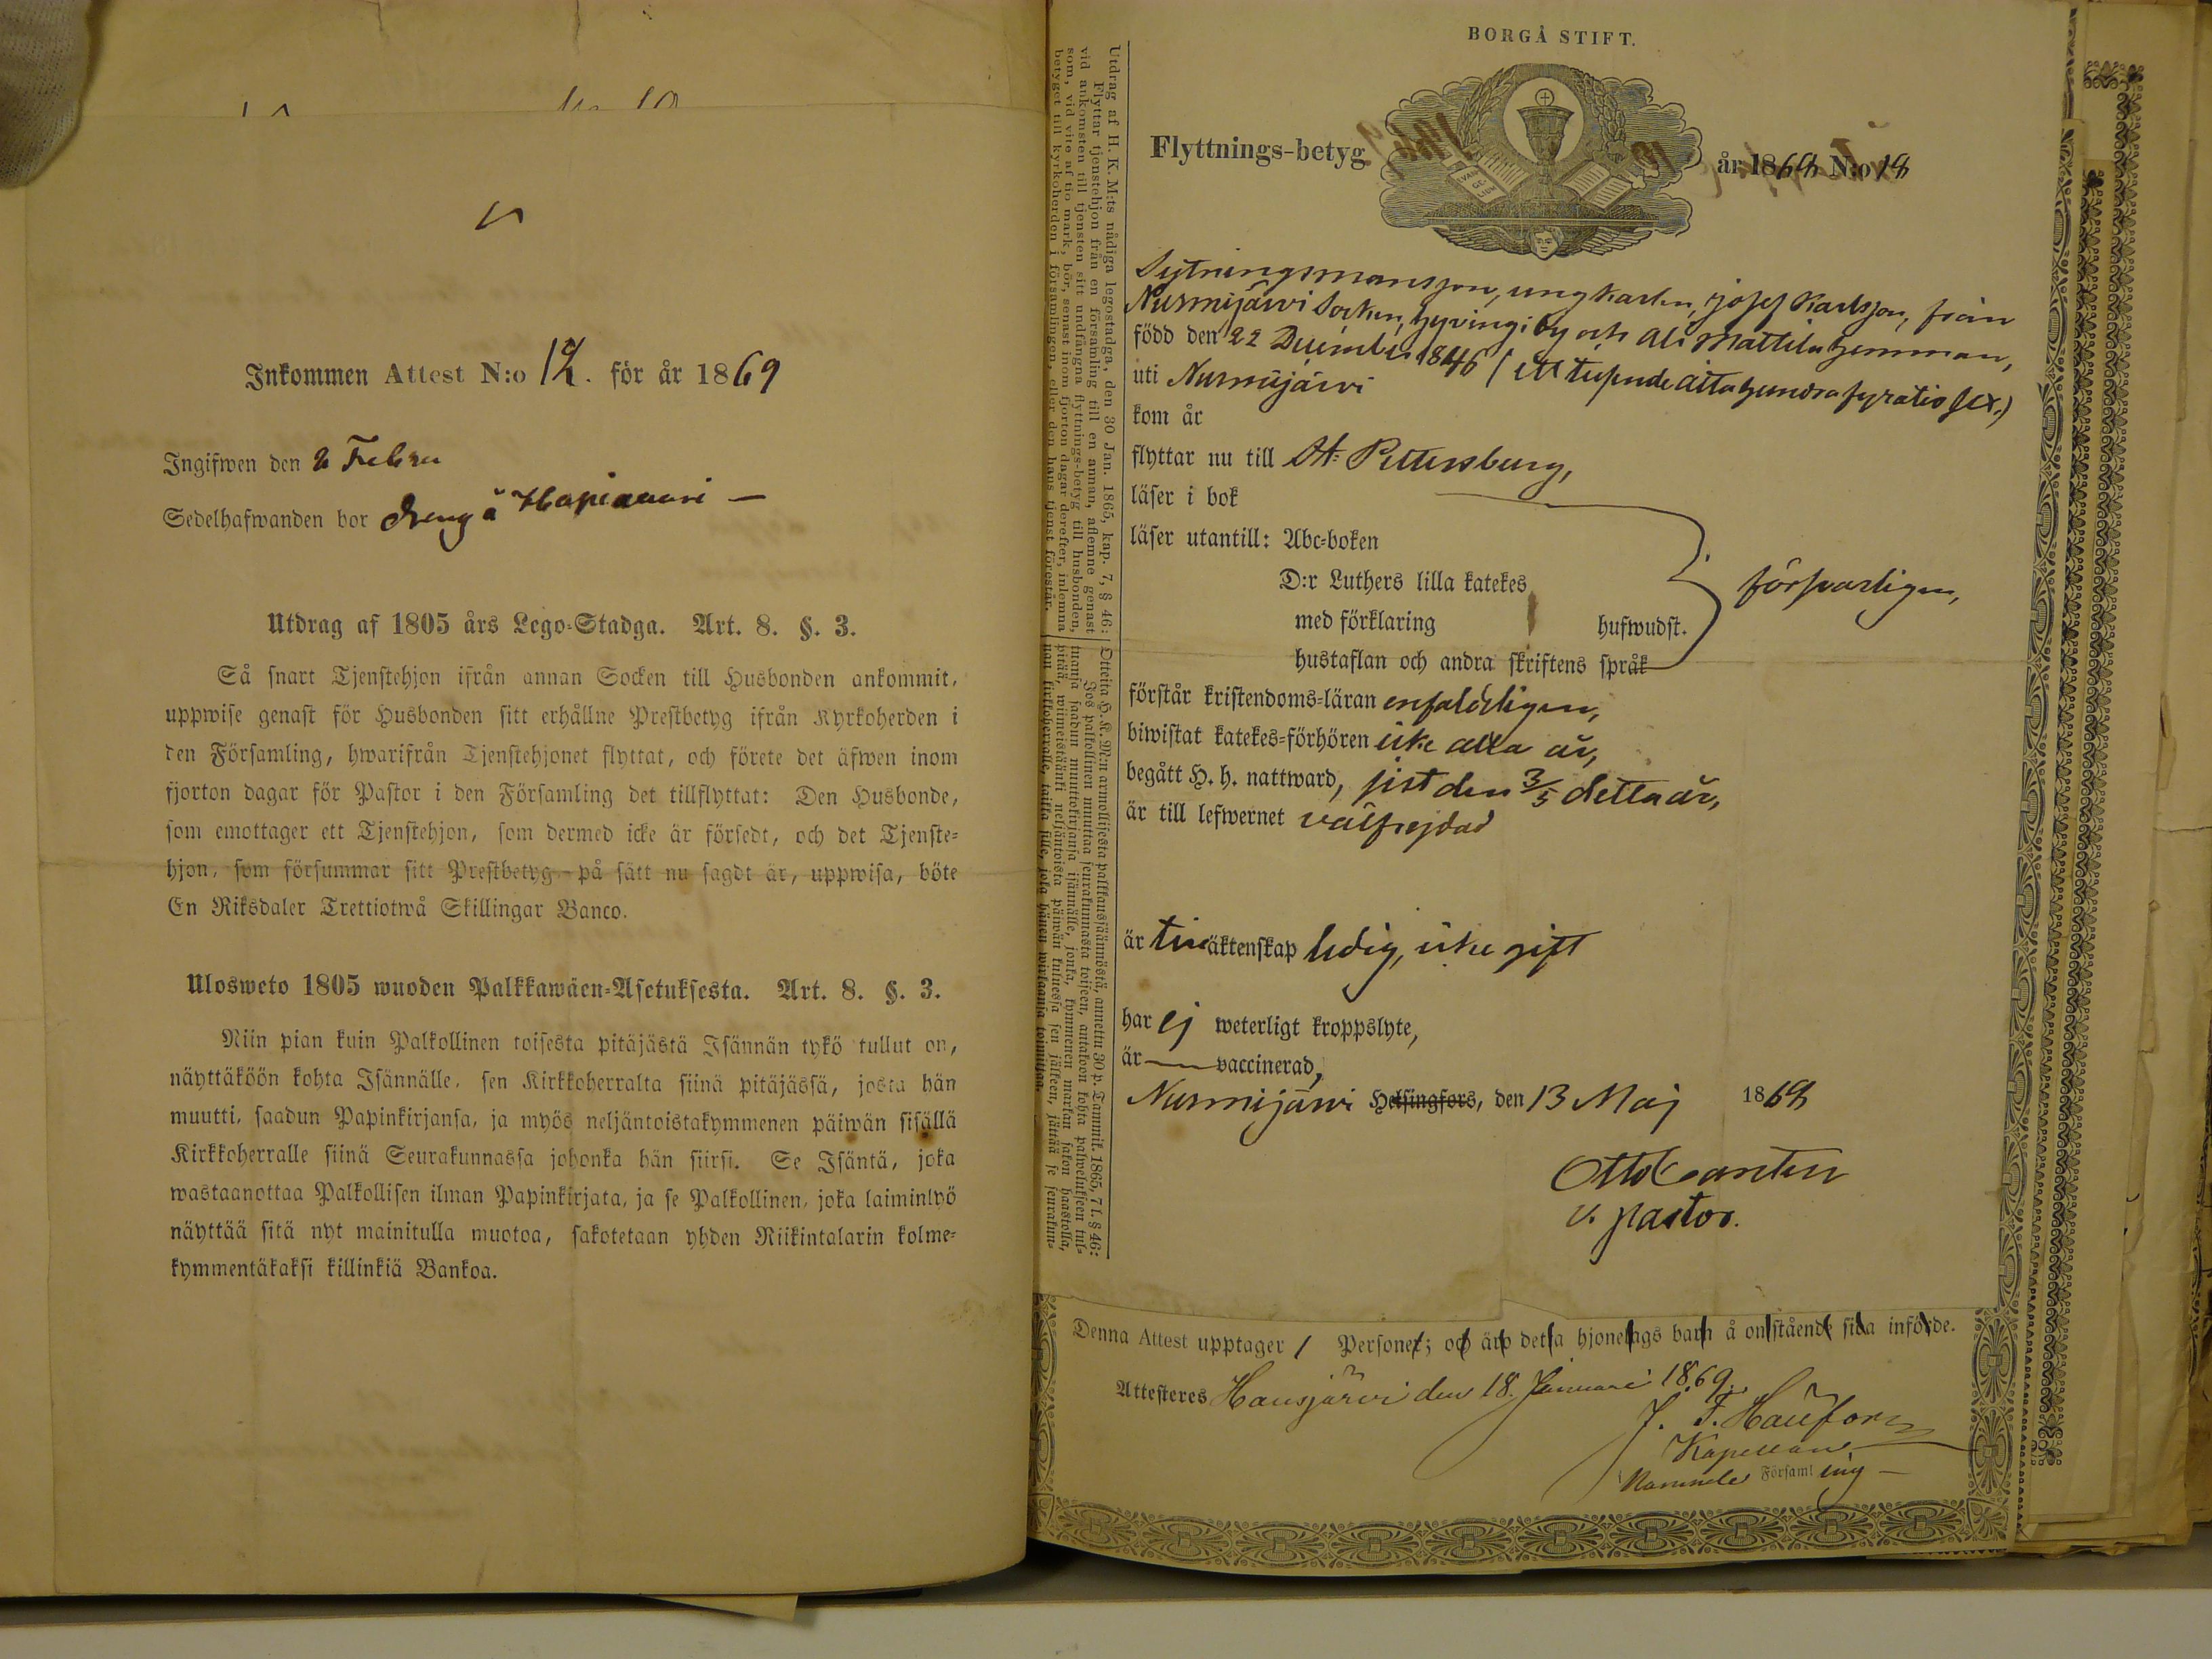 Inkommen Attest N:o 12. för år 1869
Ingifwen den 2 Febru
Sedelhafwanden bor dreng å Hapiamäri —
Utdrag af 1805 års Lego-Stadga. Art. 8. §. 3.
Så snart Tjenstehjon ifrån annan Socken till Husbonden ankommit,
uppwise genast för Husbonden sitt erhållne Prestbetyg ifrån Kyrkoherden i
den Församling, hwarifrån Tjenstehjonet flyttat, och förete det äfwen inom
fjorton dagar för Pastor i den Församling det tillflyttat: Den Husbonde,
som emottager ett Tjenstehjon, som dermed icke är försedt, och det Tjenste-
hjon, som försummar sitt Prestbetyg på sätt nu sagdt är, uppwisa, böte
En Riksdaler Trettiotwå Skillingar Banco.
Ulosweto 1805 wuoden Palkkawäen-Asetuksesta. Art. 8. §. 3.
Niin pian kuin Palkollinen toisesta pitäjästä Isännän tykö tullut on,
näyttäköön kohta Isännälle, sen Kirkkoherralta siinä pitäjässä, josta hän
muutti, saadun Papinkirjansa, ja myös neljäntoistakymmenen päiwän sisällä
Kirkkoherralle siinä Seurakunnassa johonka hän siirsi. Se Isäntä, joka
wastaanottaa Palkollisen ilman Papinkirjata, ja se Palkollinen, joka laiminlyö
näyttää sitä nyt mainitulla muotoa, sakotetaan yhden Riikintalarin kolme-
kymmentäkaksi killinkiä Bankoa.
Utdrag af H. K. M:ts nådiga legostadga, den 30 Jan. 1865, kap. 7, § 46:
Flyttar tjenstehjon från en församling till en annan, aflemne genast
vid ankomsten till tjensten sitt undfångna flyttnings-betyg till husbonden,
som, vid vite af tio mark, bör, senast inom fjorton dagar derefter, inlemna
betyget till kyrkoherden i församlingen, eller den hans tjenst förestår.
Otteita H. K. M:n armollisesta palkkausjäännöstä, annettu 30 p. Tammik. 1865, 7 l. § 46:
Jos palkollinen muuttaa seurakunnasta toiseen, antakoon kohta palwelukseen tul-
tuansa saadun muuttokirjansa isännälle, jonka, kymmenen markan sakon haastolla,
pitää, wiimeistäänki neljäntoista päiwän kuluessa sen jälkeen, jättää se seurakun-
nan kirkkoherralle, taikka sille, joka hänen wirkaansa toimittaa.
BORGÅ STIFT.
Flyttnings-betyg år 1868 N:o 18
EVAN GE LIUM
Sytningsmansson, ungkarlen, Josef Karlsson, från
Nurmijärvi Socken, Hyvinge by och Ali Mattila hemman,
född den 22 December 1846 (Ett tusende åttahundra fyratio sex.)
uti Nurmijärvi
kom år
flyttar nu till St. Pettersburg,
läser i bok
läser utantill: Abc-boken
D:r Luthers lilla katekes
med förklaring hufwudst.
hustaflan och andra skriftens språk
försvarligen,
förstår kristendoms-läran enfaldeligen,
biwistat katekes-förhören icke alla år,
begått H. h. nattward, sist den 3/5 detta år,
är till lefwernet välfrejdad
är till äktenskap ledig, icke gift
har ej weterligt kroppslyte,
är — vaccinerad,
Nurmijärvi Helsingfors, den 13 Maj 1868
Otto
v. pastor.
Denna Attest upptager 1 Personer; och äro detta hjonelags barn å omstående sida införde.
Attesteres Hausjärvi den 18. Januari 1869.
J. F.
Kapellan
Församling —